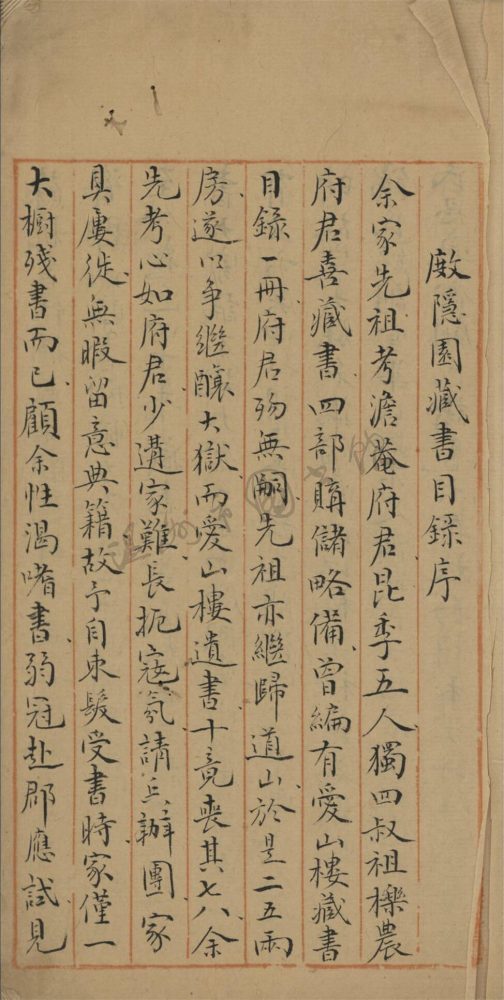 廒隱園藏書目錄序
余家先祖考澹菴府君昆季五人獨四叔祖櫟農
府君喜藏書四部購儲略備曾編有愛山樓藏書
目錄一冊府君歿無嗣先祖亦繼歸道山於是二五兩
房遂以爭繼釀大獄而愛山樓遺書十竟喪其七八余
先考心如府君少遘家難長扼寇氛請兵辦團家
具屢徙無暇留意典籍故予自束髮受書時家僅一
大櫥殘書而已顧余性渴嗜書弱冠赴郡應試見